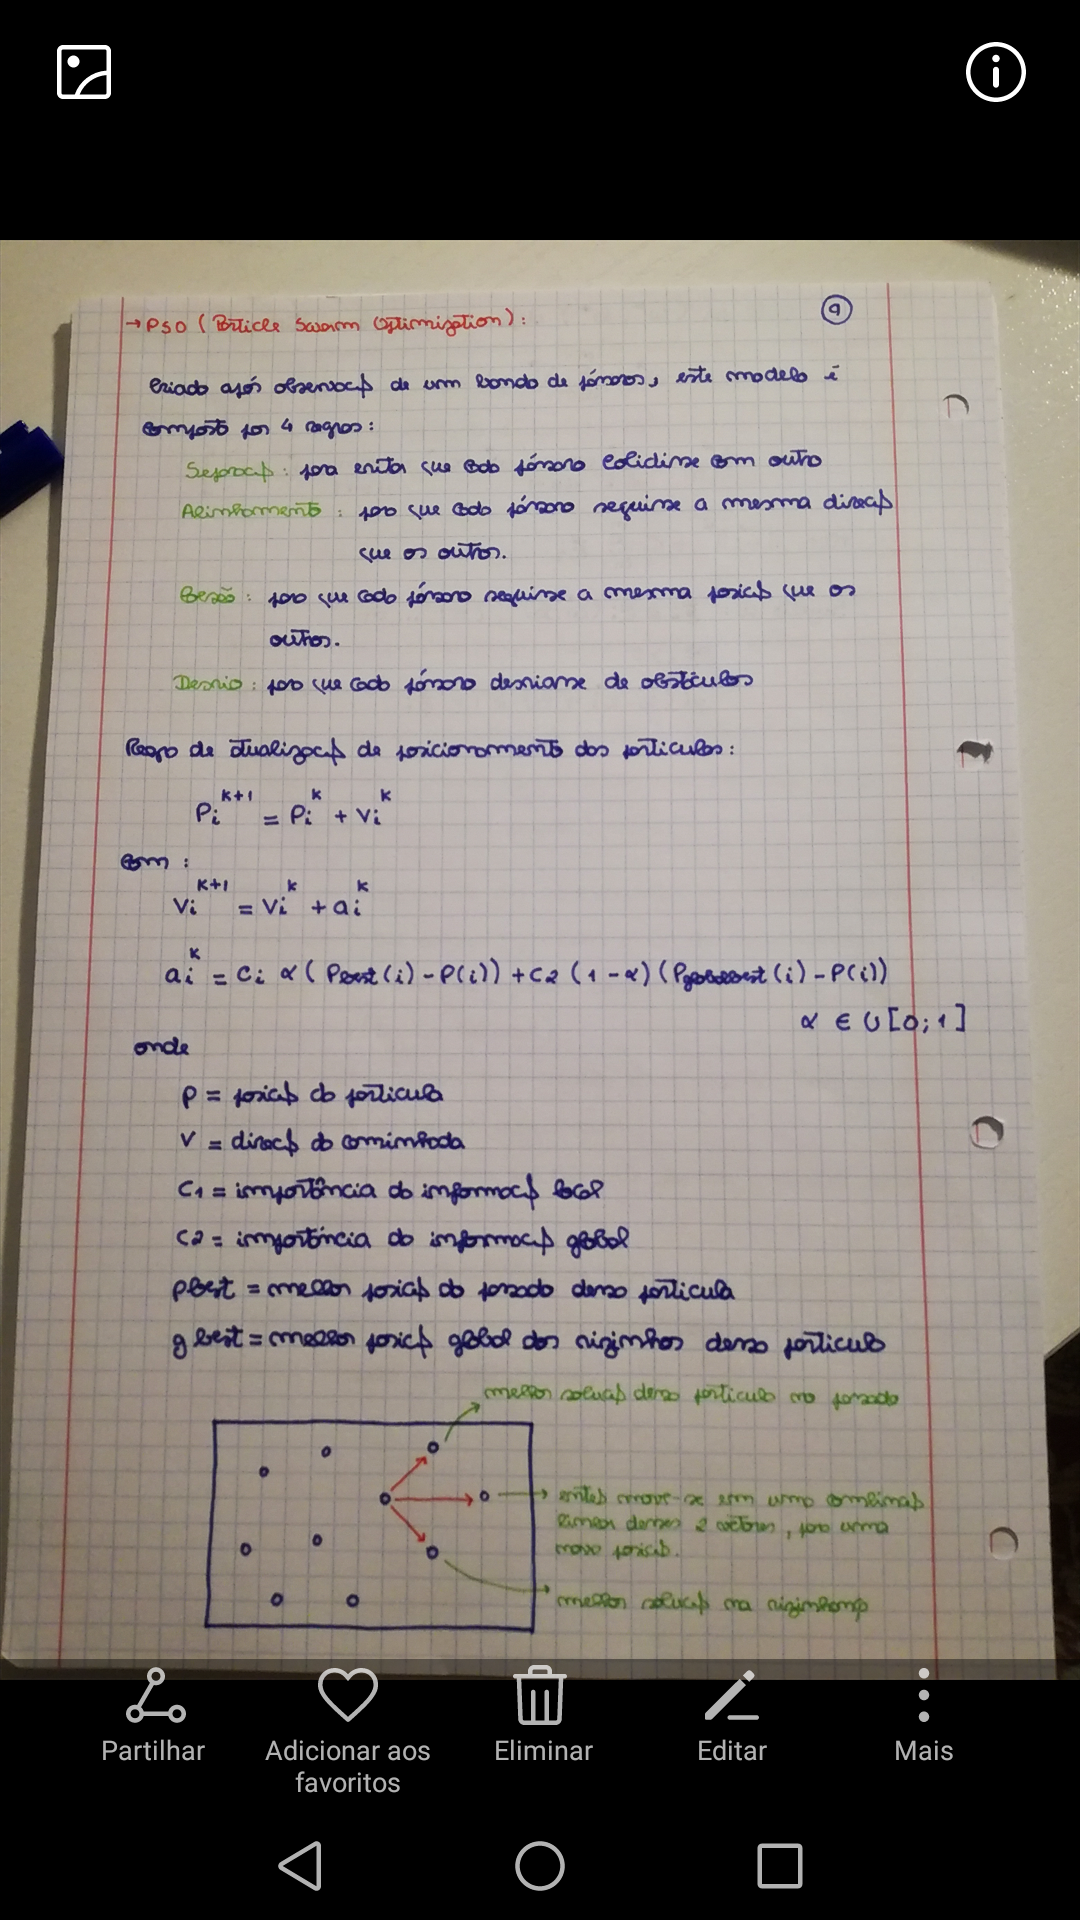 9
→ PSO (Particle Swarm Optimization):
Criado após observação de um bando de pássaros, este modelo é
composto por 4 regras:
Separação: para evitar que cada pássaro colidisse com outro
Alinhamento: para que cada pássaro seguisse a mesma direcção
que os outros.
Coesão: para que cada pássaro seguisse a mesma posição que os
outros.
Desvio: para que cada pássaro desviasse de obstáculos
Regra de atualização de posicionamento das partículas:
Pi^k+1 = Pi^k + Vi^k
com:
Vi^k+1 = Vi^k + ai^k
ai^k = Ci α (Pbest(i) - P(i)) + C2 (1 - α) (Pglobalbest(i) - P(i))
α ∈ U[0;1]
onde
P = posição da partícula
V = direcção da caminhada
C1 = importância da informação local
C2 = importância da informação global
pbest = melhor posição do passado dessa partícula
gbest = melhor posição global dos vizinhos dessa partícula
melhor solução dessa partícula no passado
então move-se em uma combinação
linear desses 2 vectores, para uma
nova posição.
melhor solução na vizinhança
Partilhar
Adicionar aos
favoritos
Eliminar
Editar
Mais